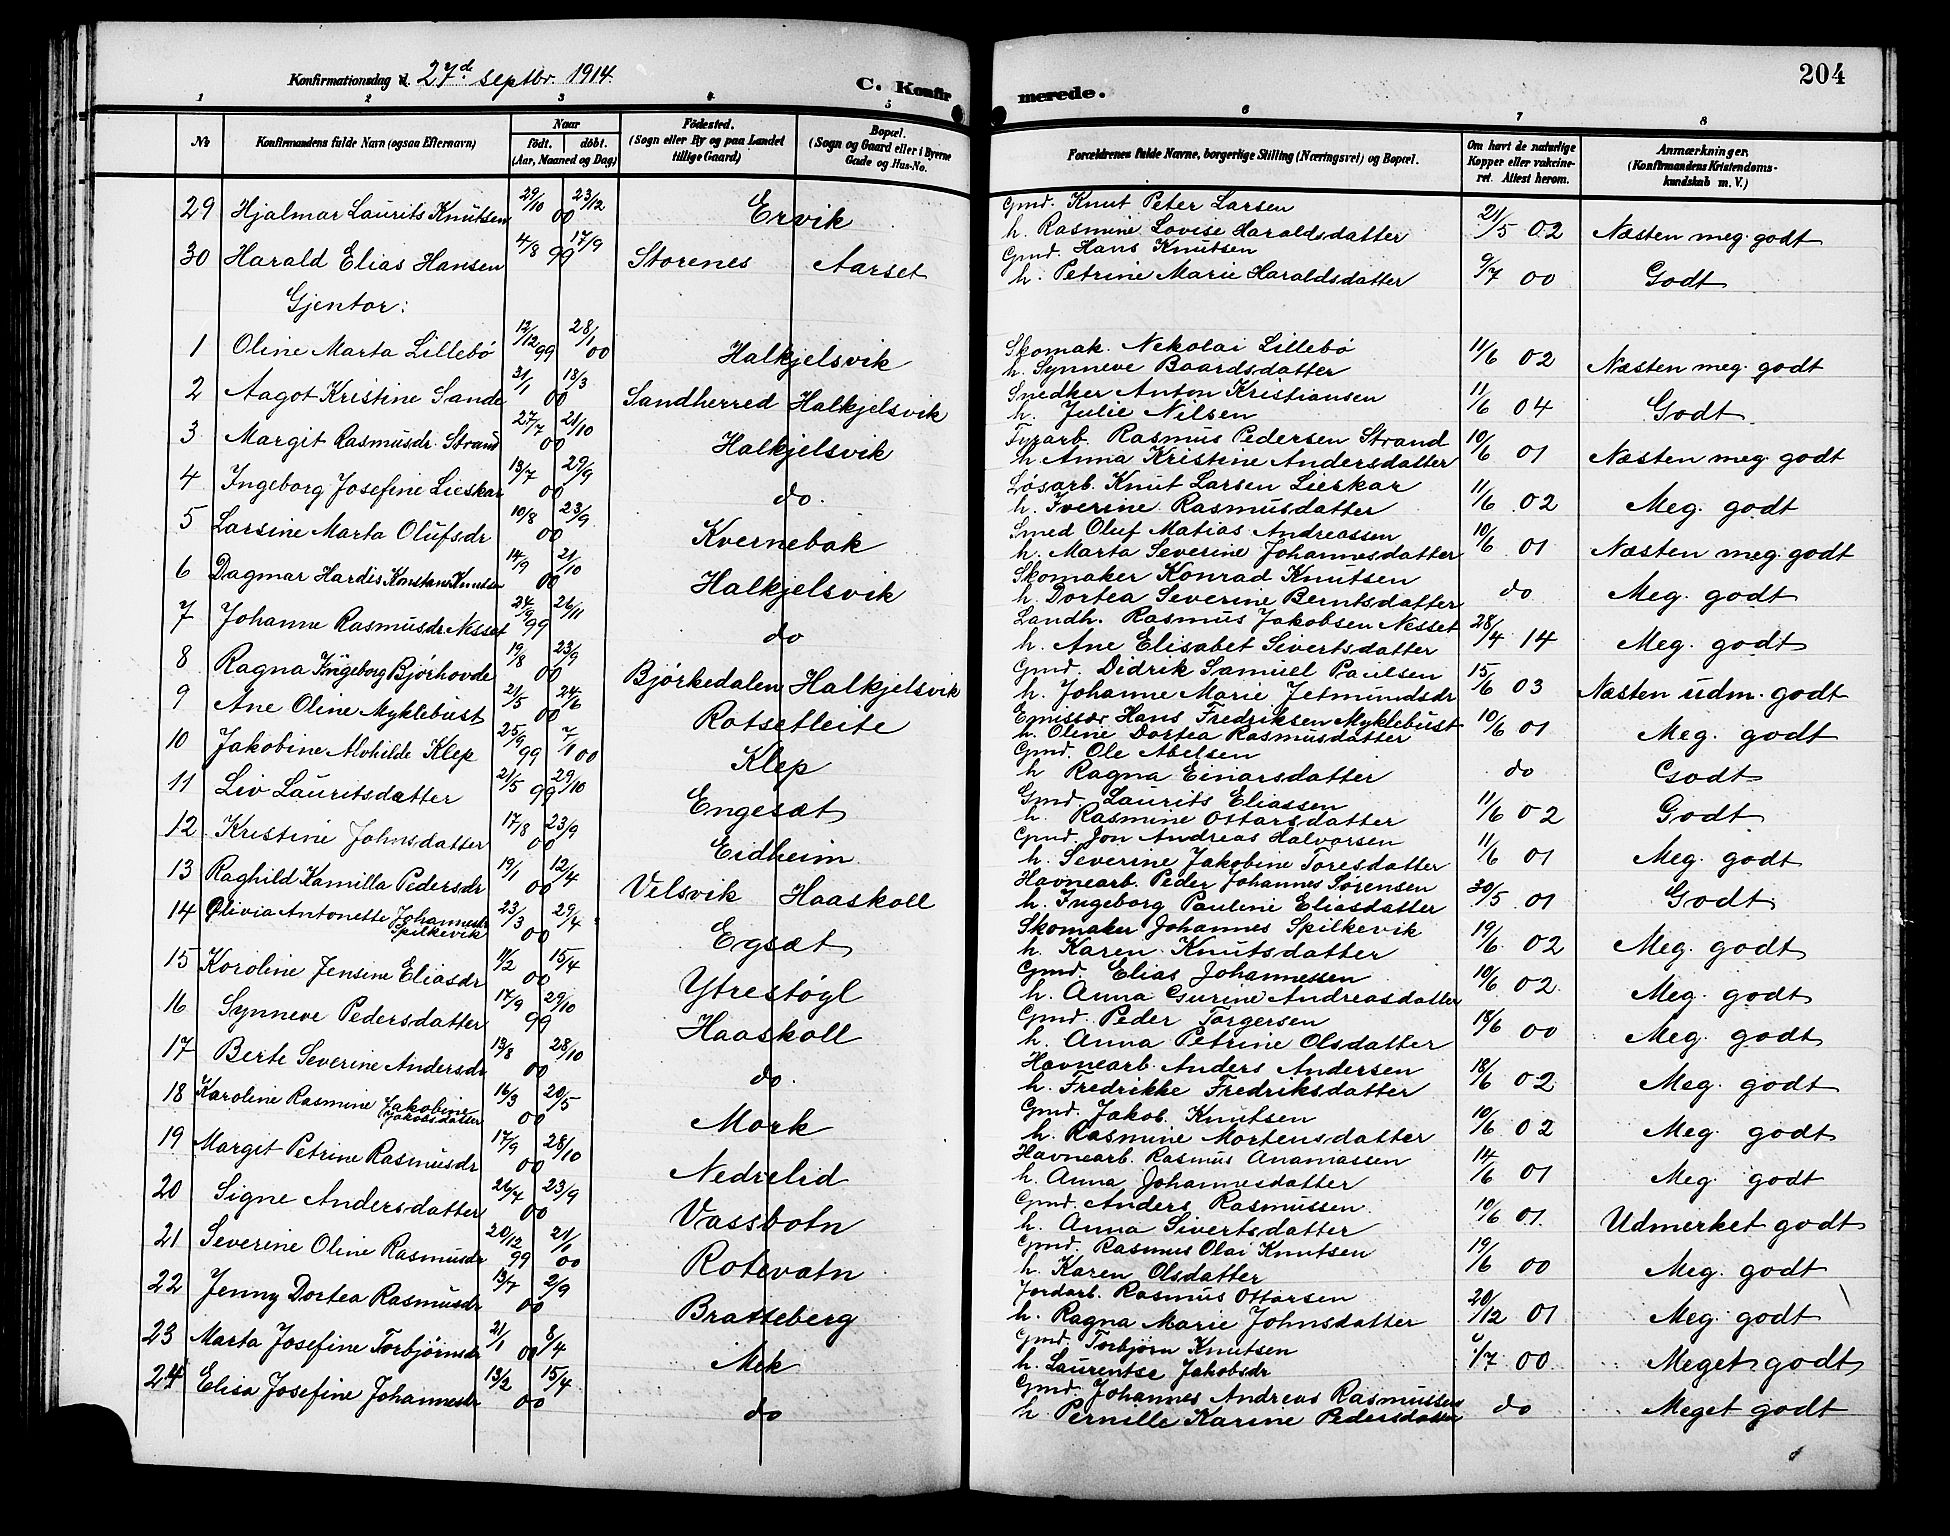 Konfirmationsdag d. 27de septbr. 1914.
C. Konfirmerede.
204
1 2 3 4 5 6 7 8
No Konfirmandens fulde Navn (ogsaa Efternavn) Naar født. døbt. (Aar, Maaned og Dag) Fødested. (Sogn eller By og paa Landet tillige Gaard) Bopæl. (Sogn og Gaard eller i Byerne Gade og Hus-No. Forældrenes fulde Navne, borgerlige Stilling (Næringsvei) og Bopæl. Om havt de naturlige Kopper eller vakcineret. Attest herom. Anmærkninger. (Konfirmandens Kristendomskundskab m. V.)
29 Hjalmar Laurits Knutsen 29/10 00 23/12 Ervik Gmd. Knut Peter Larsen h. Rasmine Lovise Haraldsdatter 21/5 02 Næsten meg. godt
30 Harald Elias Hansen 4/8 99 17/9 Storenes Aarset Gmd. Hans Knutsen h. Petrine Marie Haraldsdatter 9/7 00 Godt
Gjentor:
1 Oline Marta Lillebø 12/12 99 28/1 00 Halkjelsvik Skomak. Nekolai Lillebö h. Synneve Baardsdatter 11/6 02 Næsten meg. godt
2 Aagot Kristine Sande 31/1 00 18/3 Sandherred Halkjelsvik Snedker Anton Kristiansen h. Julie Nilsen 11/6 04 Godt
3 Margit Rasmusdr. Strand 27/7 00 21/10 Halkjelsvik Fyrarb. Rasmus Pedersen Strand h. Anna Kristine Andersdatter 10/6 01 Næsten meg. godt
4 Ingeborg Josefine Lieskar 13/7 00 29/9 do. Løsarb. Knut Larsen Lieskar h. Iverine Rasmusdatter 11/6 02 Meg. godt
5 Larsine Marta Olufsdr 10/8 00 23/9 Kvernebak Smed Oluf Matias Andreassen h. Marta Severine Johannesdatter 10/6 01 Næsten meg. godt
6 Dagmar Hardis Konstanse Knutsen 14/9 00 21/10 Halkjelsvik Skomaker Konrad Knutsen h. Dortea Severine Berntsdatter do Meg. godt
7 Johanne Rasmusdr Nesset 24/9 99 26/11 do Landh. Rasmus Jakobsen Nesset h. Ane Elisabet Sivertsdatter 28/4 14 Meg. godt
8 Ragna Ingeborg Bjørhovde 19/8 00 23/9 Bjørkedalen Halkjelsvik Gmd. Didrik Samuel Paulsen h. Johanne Marie Jetmundsdr 15/6 03 Næsten udm. godt
9 Ane Oline Myklebust 21/5 00 24/6 Rotsetleite Emissær Hans Fredriksen Myklebust h. Oline Dortea Rasmusdatter 10/6 01 Meg. godt
10 Jakobine Alvhilde Klep 25/9 99 7/1 00 Klep Gmd. Ole Abelsen h Ragna Einarsdatter do Godt
11 Liv Lauritsdatter 21/5 99 29/10 Engesæt Gmd. Laurits Eliassen h. Rasmine Ottarsdatter 11/6 02 Godt
12 Kristine Johnsdatter 17/8 00 23/9 Eidheim Gmd. Jon Andreas Halvorsen h. Severine Jakobine Toresdatter 11/6 01 Meg. godt
13 Raghild Kamilla Pedersdr 19/1 00 12/4 Velsvik Haaskoll Havnearb. Peder Johannes Sørensen h. Ingeborg Pauline Eliasdatter 30/5 01 Godt
14 Olivia Antonette Johannesdr Spilkevik 23/3 00 29/4 Egsæt Skomaker Johannes Spilkevik h. Karen Knutsdatter 19/6 02 Meg. godt
15 Koroline Jensine Eliasdr 11/2 00 15/4 Ytrestøyl Gmd. Elias Johannessen h. Anna Gurine Andreasdatter 10/6 02 Meg. godt
16 Synneve Pedersdatter 17/9 99 29/10 Haaskoll Gmd. Peder Torgersen h. Anna Petrine Olsdatter 18/6 00 Meg. godt
17 Berte Severine Andersdr 13/8 00 28/10 do. Havnearb. Anders Andersen h. Fredrikke Fredriksdatter 18/6 02 Meg. godt
18 Karoline Rasmine Jakobine Jakobsdatter 16/3 00 20/5 Mork Gmd. Jakob Knutsen h. Rasmine Mortensdatter 10/6 02 Meg. godt
19 Margit Petrine Rasmusdr 17/9 00 28/10 Nedrelid Havnearb. Rasmus Ananiassen h. Anna Johannesdatter 14/6 01 Meg. godt
20 Signe Andersdatter 26/7 00 23/9 Vassbotn Gmd. Anders Rasmussen h. Anna Sivertsdatter 10/6 01. Udmerket godt
21 Severine Oline Rasmusdr 20/12 99 21/1 00 Rotevatn Gmd. Rasmus Olai Knutsen h. Karen Olsdatter 19/6 00 Meg. godt
22 Jenny Dortea Rasmusdr 13/7 00 2/9 Bratteberg Jordarb. Rasmus Ottarsen h. Ragna Marie Johnsdatter 20/12 01 Meg. godt
23 Marta Josefine Torbjørnsdr 21/1 00 8/4 Mek Gmd. Torbjørn Knutsen h. Laurentse Jakobsdr 6/7 00 Meget godt
24 Elisa Josefine Johannesdr 13/2 00 15/4 do Gmd. Johannes Andreas Rasmussen h. Pernille Karine Pedersdatter do Meget godt